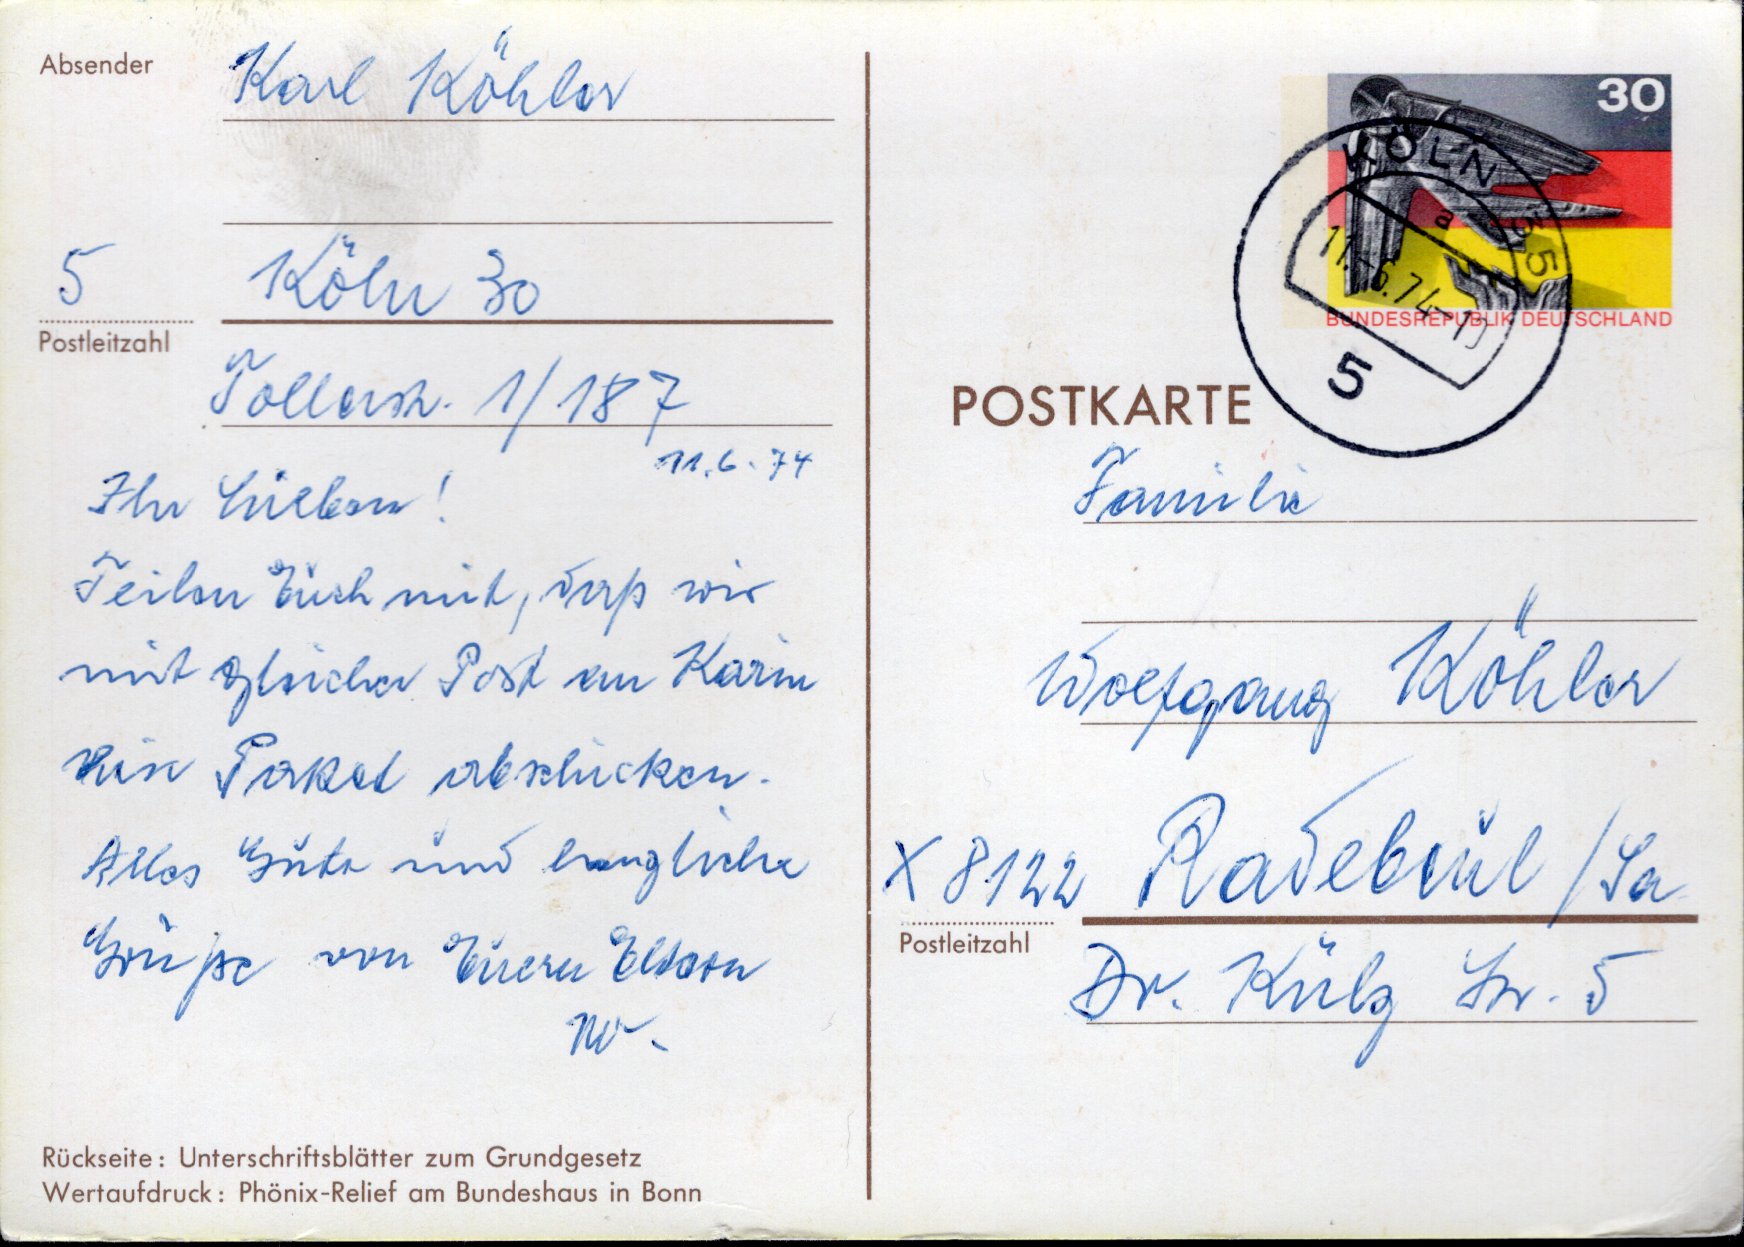 Absender
Karl Köhler
5 Köln 30
Postleitzahl
Tollerstr. 1/187
11.6.74
Ihr Lieben!
Teilen Euch mit, daß wir
mit gleicher Post an Karin
ein Paket abschicken.
Alles Gute und herzliche
Grüße von Euern Eltern
Rückseite: Unterschriftsblätter zum Grundgesetz
Wertaufdruck: Phönix-Relief am Bundeshaus in Bonn
30
BUNDESREPUBLIK DEUTSCHLAND
KÖLN 35
a
11.-6.74-
5
POSTKARTE
Familie
Wolfgang Köhler
X 8122 Radebeul /Sa.
Postleitzahl
Dr. Külz Str. 5